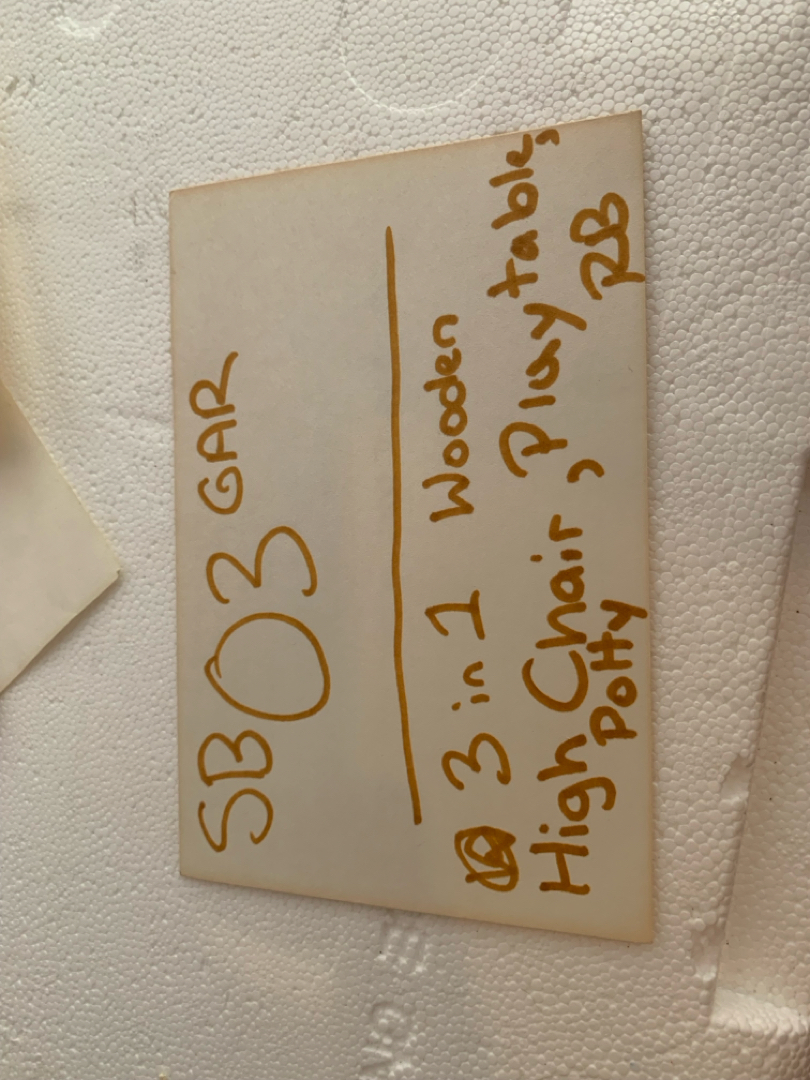 SB03 GAR
3 in 1 Wooden
High Chair, Play table,
Potty RB